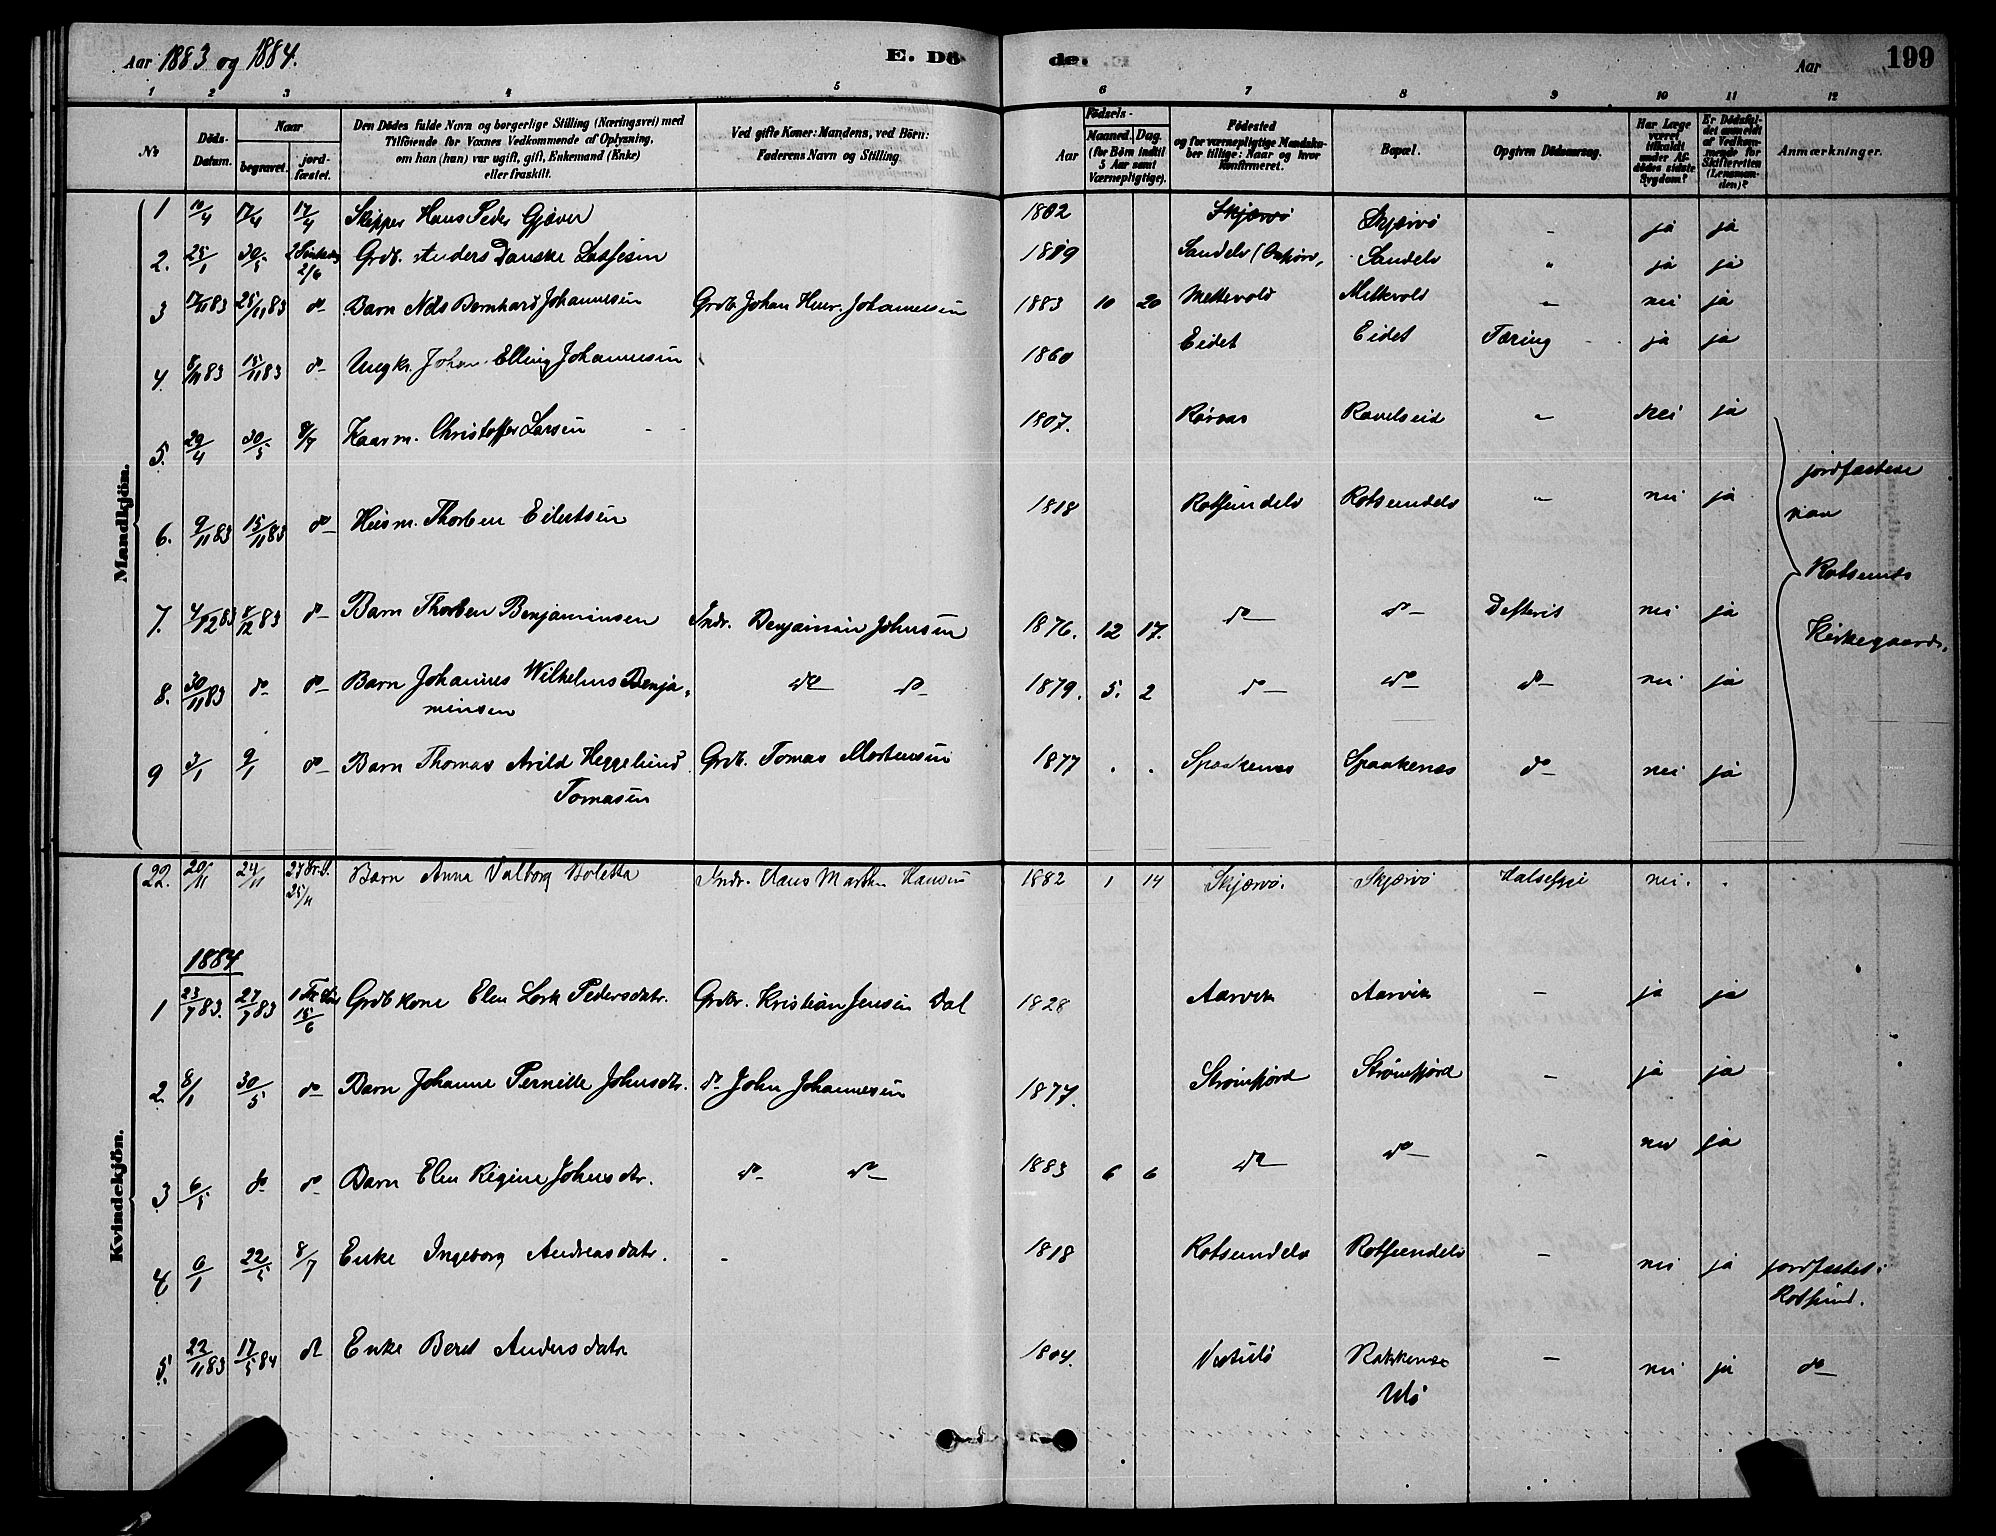 Aar 1883 og 1884. E. Dö- de. Aar 199
1 2 3 4 5 6 7 8 9 10 11 12
No
Døds-Datum.
Naar
begravet.
jord-fæstet.
Den Dødes fulde Navn og borgerlige Stilling (Næringsvei) med
Tilföiende for Voxnes Vedkommende af Oplysning,
om han (hun) var ugift, gift, Enkemand (Enke)
eller fraskilt.
Ved gifte Koner: Mandens, ved Börn:
Faderens Navn og Stilling.
Födsels-
Aar
Maaned. Dag.
(for Börn indtil
5 Aar samt
Værnepligtige).
Födested
og for værnepligtige Mandska-
ber tillige: Naar og hvor
Konfirmeret.
Bopæl.
Opgiven Dödsaarsag.
Har Læge
været
tilkaldt
under Af-
dödes sidste
Sygdom?
Er Dödsfal-
det anmeldt
af Vedkom-
mende for
Skifteretten
(Lensman-
den)?
Anmærkninger.
Mandkjön.
1 10/4 17/4 17/4 Skipper Hans Peder Gjæver 1802 Skjærvö Skjærvö - ja ja
2. 25/1 30/5 2/6 Grdb. Anders Danske Lassesen 1819 Sandelv Sandelv " ja ja
3 25/11 83 do Barn Nils Bernhard Johannesen Grdb. Johan Henr. Johannesen 1883 10 20 Mettevold Melkvold - nei ja
4. 15/11 83 do Ungk. Johan Elling Johannesen 1860 Eidet Eidet Tæring ja ja
5. 29/4 30/5 8/7 Kaarm. Christoffer Larsen 1807. Röraas Ravelseid - nei ja
6. 9/11 83 15/11 83 do Husm. Thorben Eilertsen 1818 Rotsundelv Rotsundelv " nei ja
7. 4/12 83 8/12 83 do Barn Thorben Benjaminsen Indr. Benjamin Johnsen 1876. 12 17. do do Defterit nei ja
8. 30/11 83 do do Barn Johannes Wilhelms Benja-
minsen do do 1879. 5. 2 do do do nei ja
9 3/1 9/1 do Barn Thomas Arild Heggelund
Tomasen Grdb. Tomas Mortensen 1877 . . Spaakenes Spaakenes do nei ja
jordfæstede
paa
Rotsunds
Kirkegaard.
Kvindekjön.
22. 20/11 24/11 25/11 Barn Anna Valborg Boletta Indr. Hans Marthin Hansen 1882 1 14 Skjærvö. Skjærvö Halsesyge nei. .
1884
1 23/7 83. 27/7 83 15/6 Grdb kone Elen Lork Pedersdatr. Grdbr. Kristian Jensen Dal 1828 Aarvik Aarvik - ja ja
2. 8/1 30/5 do Barn Johanne Pernille Johnsdtr. do John Johannesen 1877. Strömfjord Strömfjord - ja ja
3 6/5 do do Barn Elen Regine Johnsdtr. do do 1883 6 6 do do - nei ja
4 6/1 22/5 8/7 Enke Ingeborg Andreasdatr. - 1818 Rotsundelv Rotsundelv - nei ja jordfæstet i
Rotsund.
5. 22/11 83 17/5 84 do Enke Beret Andersdatr 1804. Rakkenes
Ulö - nei ja do